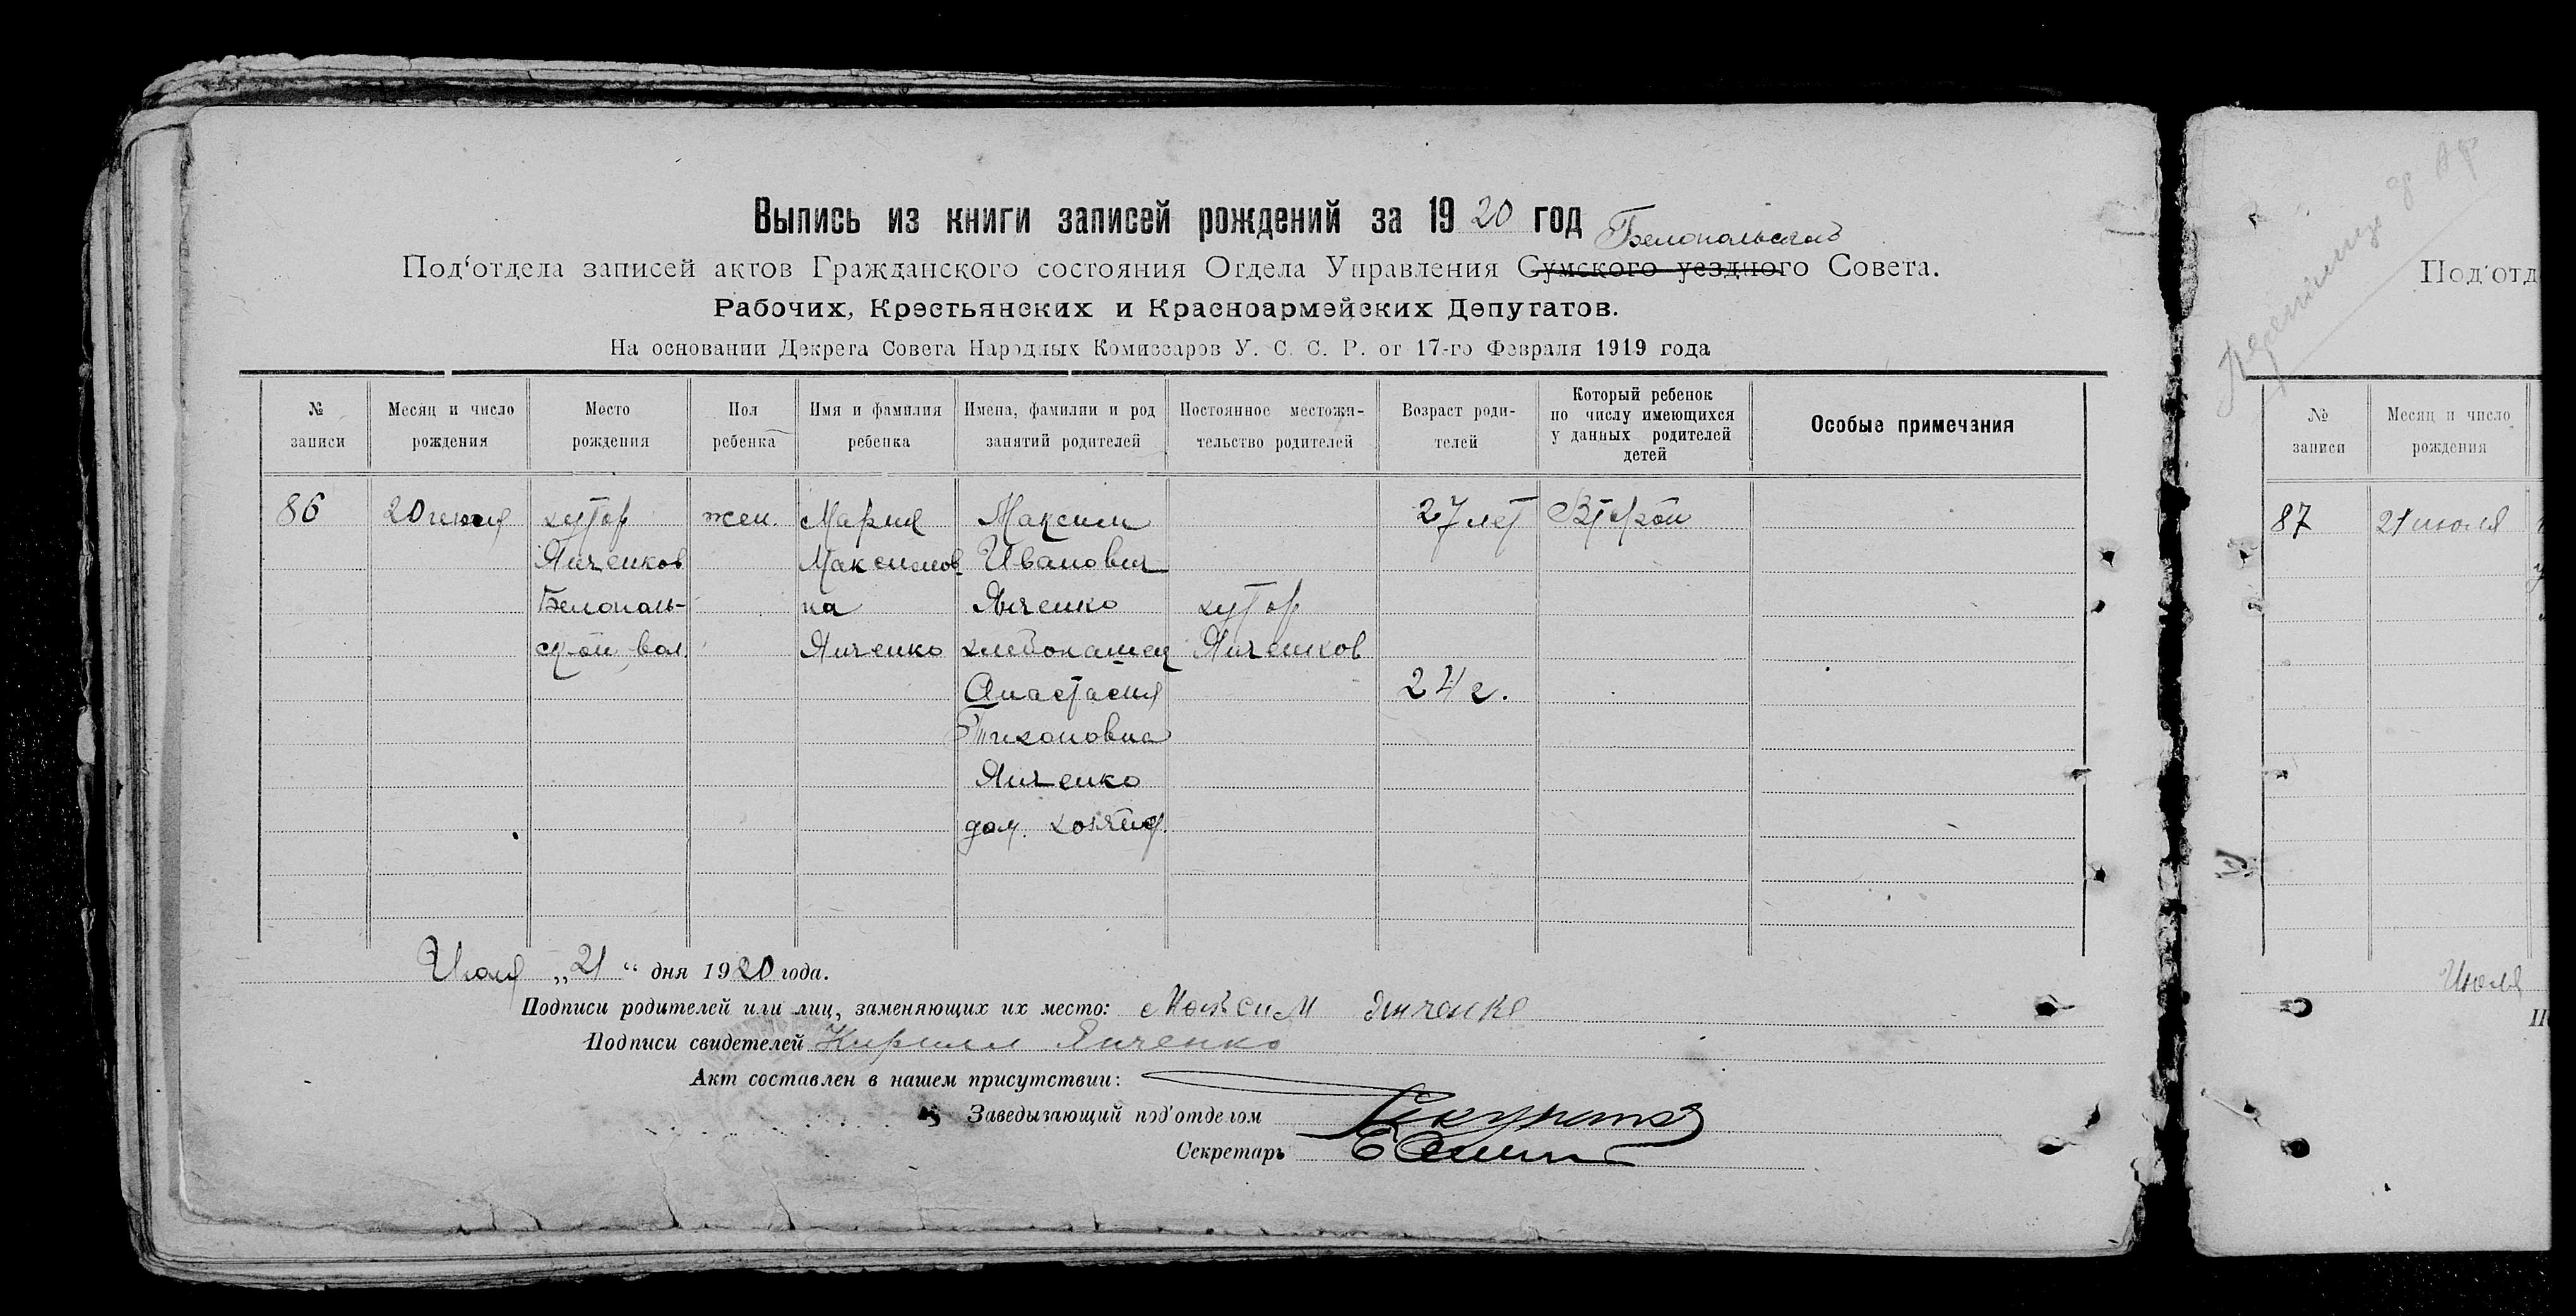 Выпись из книги записей рождений за 1920 год
Белопольского
Под‘отдела записей актов Гражданского состояния Отдела Управления Сумского уездного Совета.
Рабочих, Крестьянских и Красноармейских Депутатов.
На основании Декрета Совета Народных Комиссаров У. С. С. Р. от 17-го Февраля 1919 года
№ записи
Месяц и число рождения
Место рождения
Пол ребенка
Имя и фамилия ребенка
Имена, фамилии и род занятий родителей
Постоянное местожи-тельство родителей
Возраст роди-телей
Который ребенок по числу имеющихся у данных родителей детей
Особые примечания
86 20 хутор жен. Мария Максим 27 лет Второй
Янченков Максимов Иванович
Белополь- на Янченко хутор
ской вол. Янченко хлебопашец Янченков
Анастасия 24 г.
Тихоновна
Янченко
дом. хозяйс.
Июля „21“ дня 1920 года.
Подписи родителей или лиц, заменяющих их место: Максим Янченко
Подписи свидетелей Кирилл Янченко
Акт составлен в нашем присутствии:
Заведывающий под‘отделом
Секретарь
Под‘отд
№ записи
Месяц и число рождения
87 21 июля
Июля